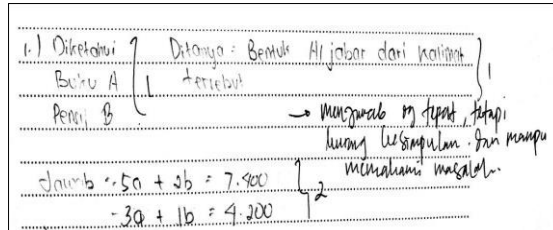 1.) Diketahui Ditanya : Bentuk Aljabar dari kalimat
Buku A tersebut
Pensil B
1
1
→ menjawab dg tepat, tetapi
kurang kesimpulan. dan mampu
memahami masalah.
Jawab : 5a + 2b = 7.400
- 3a + 1b = 4.200
2